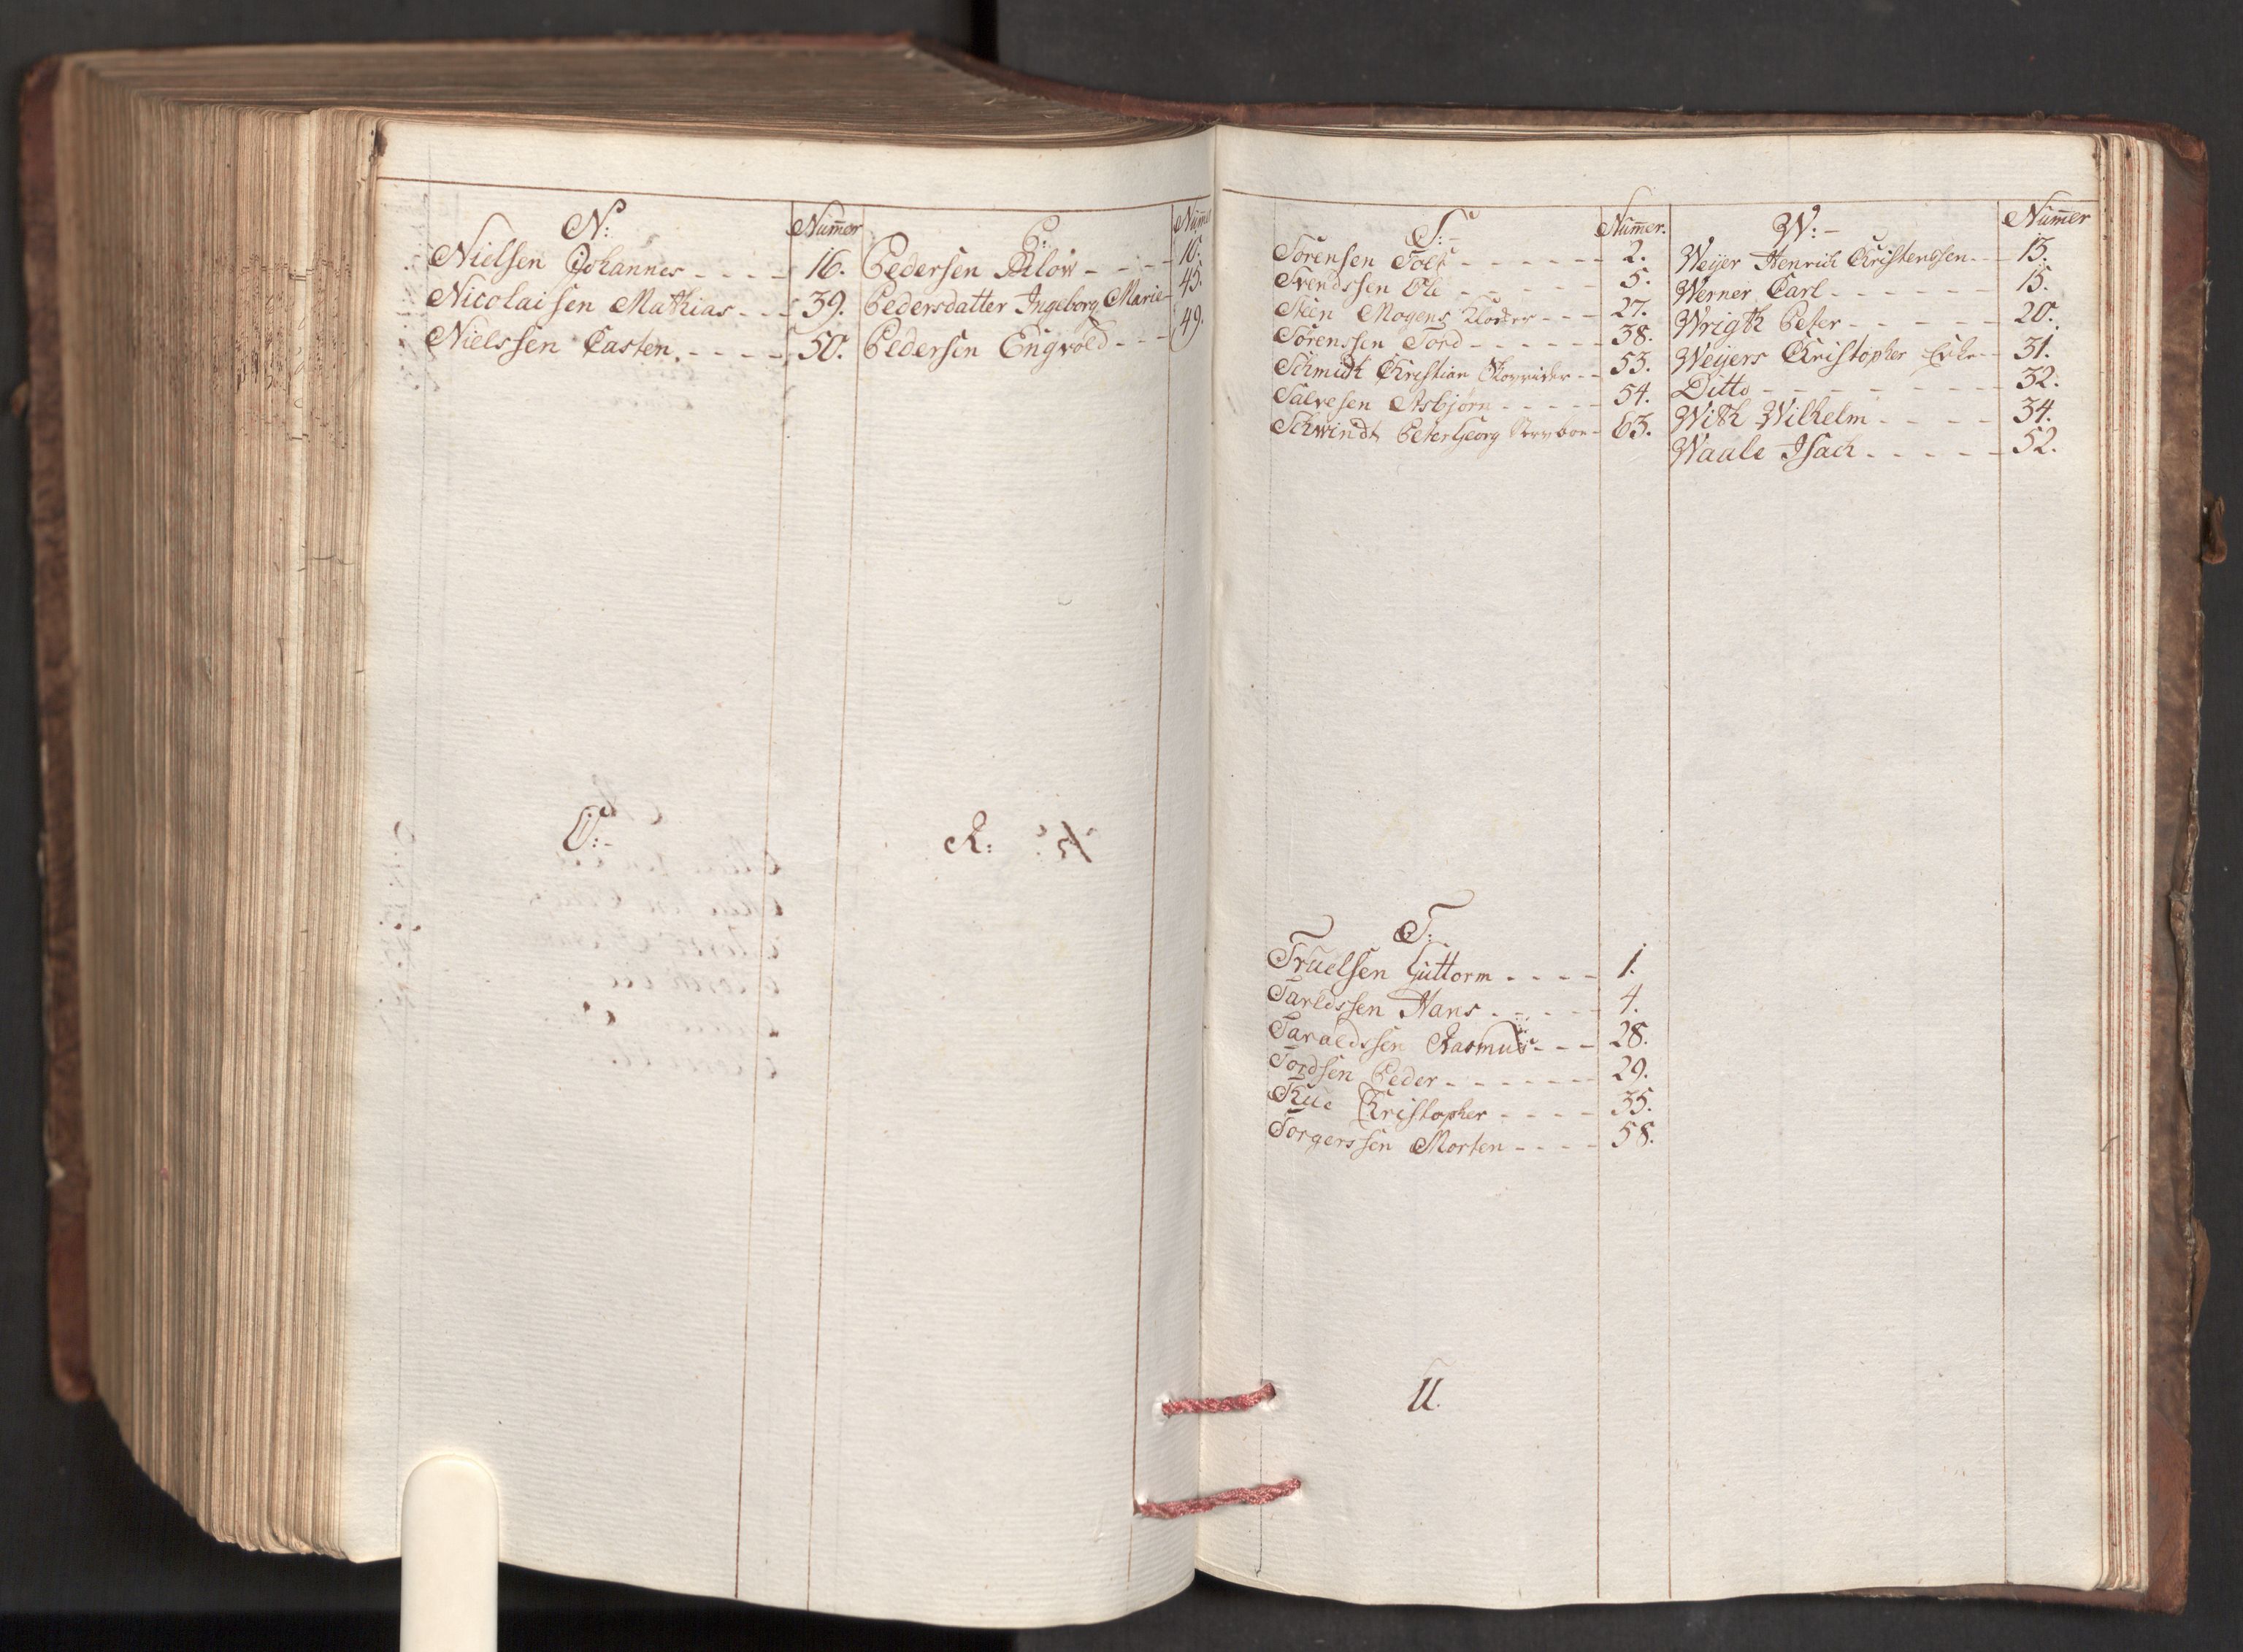 N:
Num̅er
Nielsen Johannes - - - - 16.
Nicolaisen Mathias - - - 39.
Nielssen Casten. - - - - 50.
O:-
P:
Num̅er
Pedersen Bülow - - - 10.
Pedersdatter Ingeborg Marie - 45.
Pedersen Engvold - - - 49.
R:
S:-
Num̅er.
Sørensen - - - - - - 2.
Svendssen Ole - - - - - 5.
Steen Mogens - - - 27.
Sørenssen Tord - - - - - - 38.
Schmidt Christian Skovrider - - 53.
Salvesen Asbjørn - - - - - 54.
Schwindt Peter Georg - 63.
T:
Truelsen Guttorm - - - - 1.
Tarldssen Hans - - - - - 4.
Taraldssen Rasmus - - - 28.
Tordsen Peder - - - - - - 29.
Thue Christopher - - - - 35.
Torgerssen Morten - - - - 58.
U.
W:-
Num̅er
Weyer Henrich Christenssen - - 13.
Werner Carl - - - - - - 15.
Wrigth Peter - - - - - - 20.
Weyers Christopher Enke - - 31.
Ditto - - - - - - - - 32.
With Wilhelm - - - - - 34.
Waale Isach - - - - - 52.